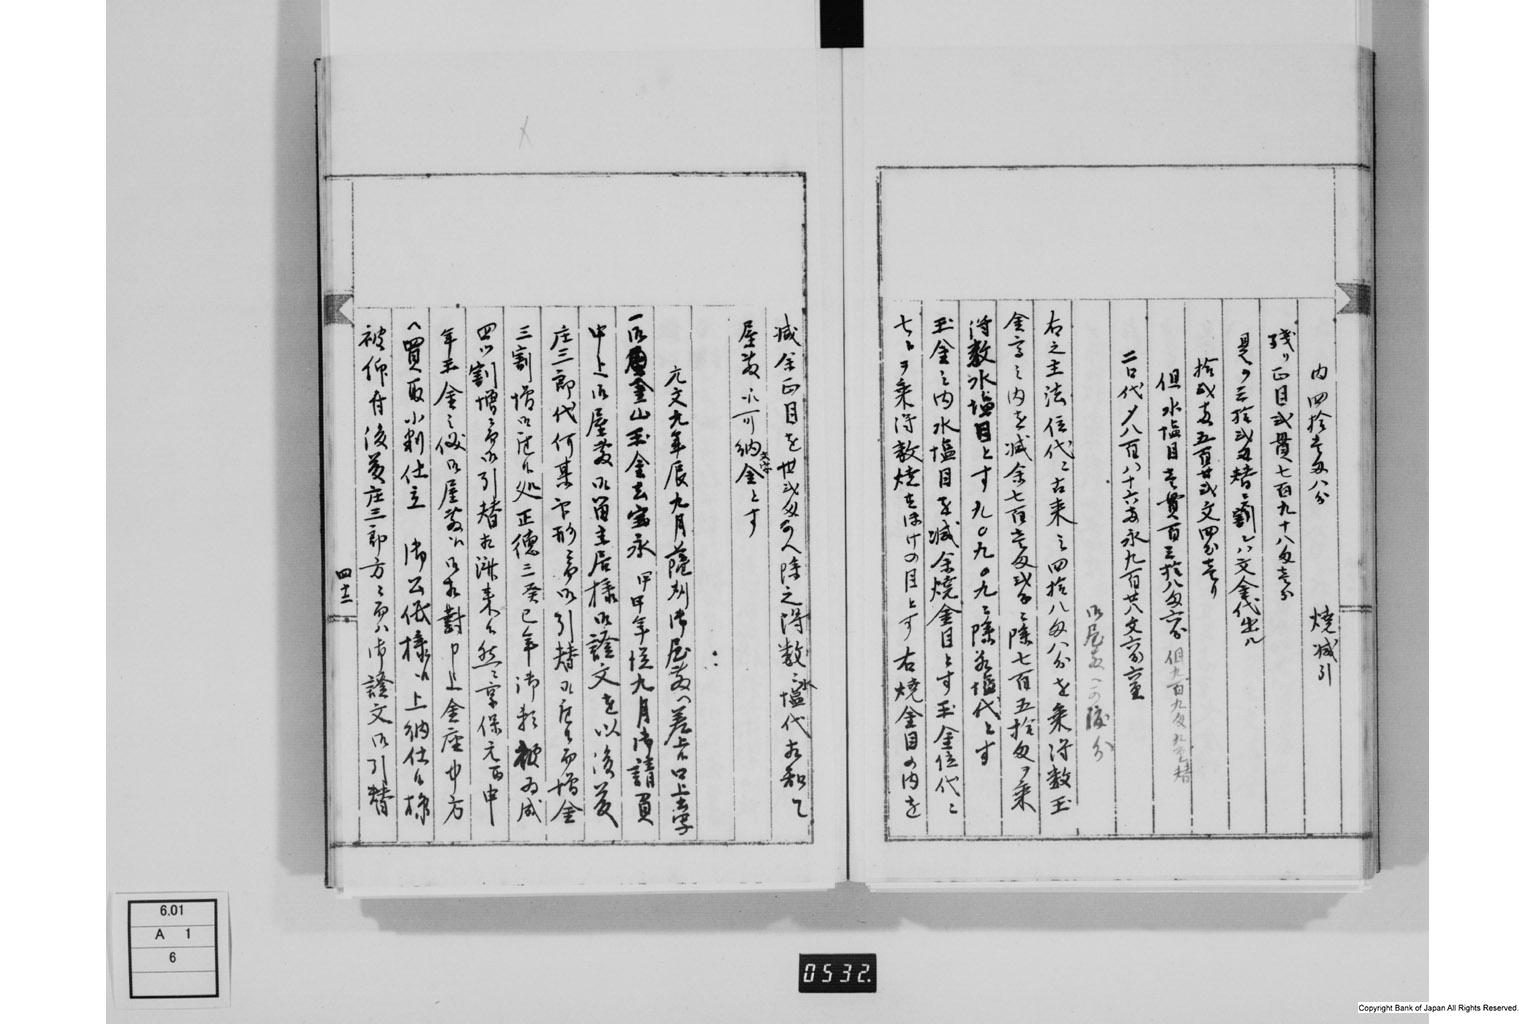 内四拾壱匁八分　焼減引
残り正目弐貫七百九十八匁壱分
是ヲ三拾弐匁替ニ割ハ文金代出ル
拾弐両五百廿弐文四分壱り
但水塩目壱貫百三拾八匁六分
二口代〆八百八十六両永九百廿八文六分六重
御屋敷への
右之主法位代ニ古来之四拾八匁八分を乗得数玉
金高之内を減余七百壱匁弐分ニ除七百五拾匁ヲ乗
得数水塩目とす九〇九〇九ニ除水塩代とす
玉金之内水塩目を減余焼金目とす玉金位代ニ
七ヒヲ乗得数焼をほけの目とす右焼金目の内を
減余正目を廿弐匁ヲ入除之得数ニ水塩代相知て
屋敷江可納文字金とす
元文九年辰九月薩刕御屋敷へ差上候口上書写
一御金山玉金去宝永甲申年従九月御請負
申上御屋敷御留主居様御證文を以後藤
庄三郎代何某下形ニ而御引替被下候而増金
三割増御座候処正徳三癸巳年御願被為成
四ツ割増ニ而御引替相渉来候然ニ享保元丙申
年玉金之儀御屋敷ゟ御相対申上金座中方
へ買取小判仕立　御公儀様ゟ上納仕候様
被仰付後藤庄三郎方ニ而ハ御證文御引替
四十二
6.01
A 1
6
0532.
Copyright Bank of Japan All Rights Reserved.